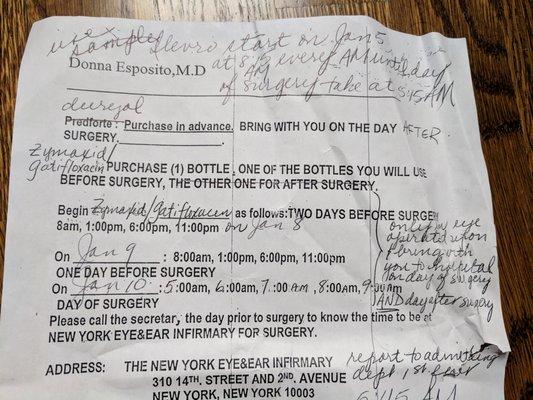 use sample Ilevro start on Jan 5
at 8:15 every AM until day
Donna Esposito, M.D
of surgery AM take at 5:15 AM
durezol
Predforte: Purchase in advance. BRING WITH YOU ON THE DAY AFTER.
SURGERY.
Zymaxid/
Gatifloxacin PURCHASE (1) BOTTLE, ONE OF THE BOTTLES YOU WILL USE
BEFORE SURGERY, THE OTHER ONE FOR AFTER SURGERY.
Begin Zymaxid/Gatifloxacin as follows: TWO DAYS BEFORE SURGERY
8am, 1:00pm, 6:00pm, 11:00pm on Jan 8
only in eye
operated upon
& bring with
you to hospital
on day of surgery
AND day after surgery
On Jan 9 : 8:00am, 1:00pm, 6:00pm, 11:00pm
ONE DAY BEFORE SURGERY
On Jan 10 : 5:00am, 6:00am, 7:00 AM, 8:00am, 9:00am
DAY OF SURGERY
Please call the secretar, the day prior to surgery to know the time to be at
NEW YORK EYE&EAR INFIRMARY FOR SURGERY.
ADDRESS: THE NEW YORK EYE&EAR INFIRMARY
310 14TH, STREET AND 2ND, AVENUE
NEW YORK, NEW YORK 10003
report to admitting
dept 1st floor
6:15 AM